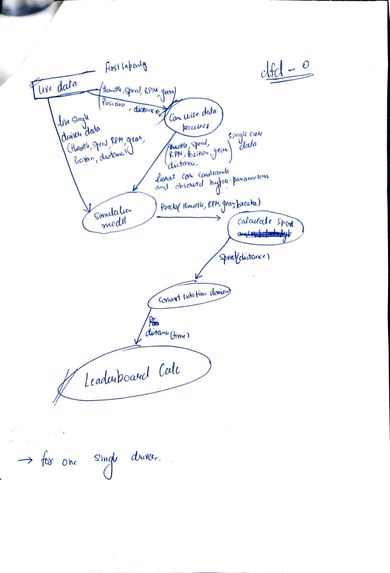 First lap only
dfd - 0
Live data
(throttle, Speed, RPM, gear)
Position, distance
Car wise data
live single
driver data
(throttle, Speed, RPM, gear,
Position, distance)
(throttle, Speed,
RPM, Position, gear)
distance,
single car
data
car constraints
and observed hyper-parameters
Simulation
model
(throttle, RPM, gear, breaks)
Calculate Speed
Speed(distance)
Convert into time domain
distance(time)
Leaderboard Calc
→ for one single driver.